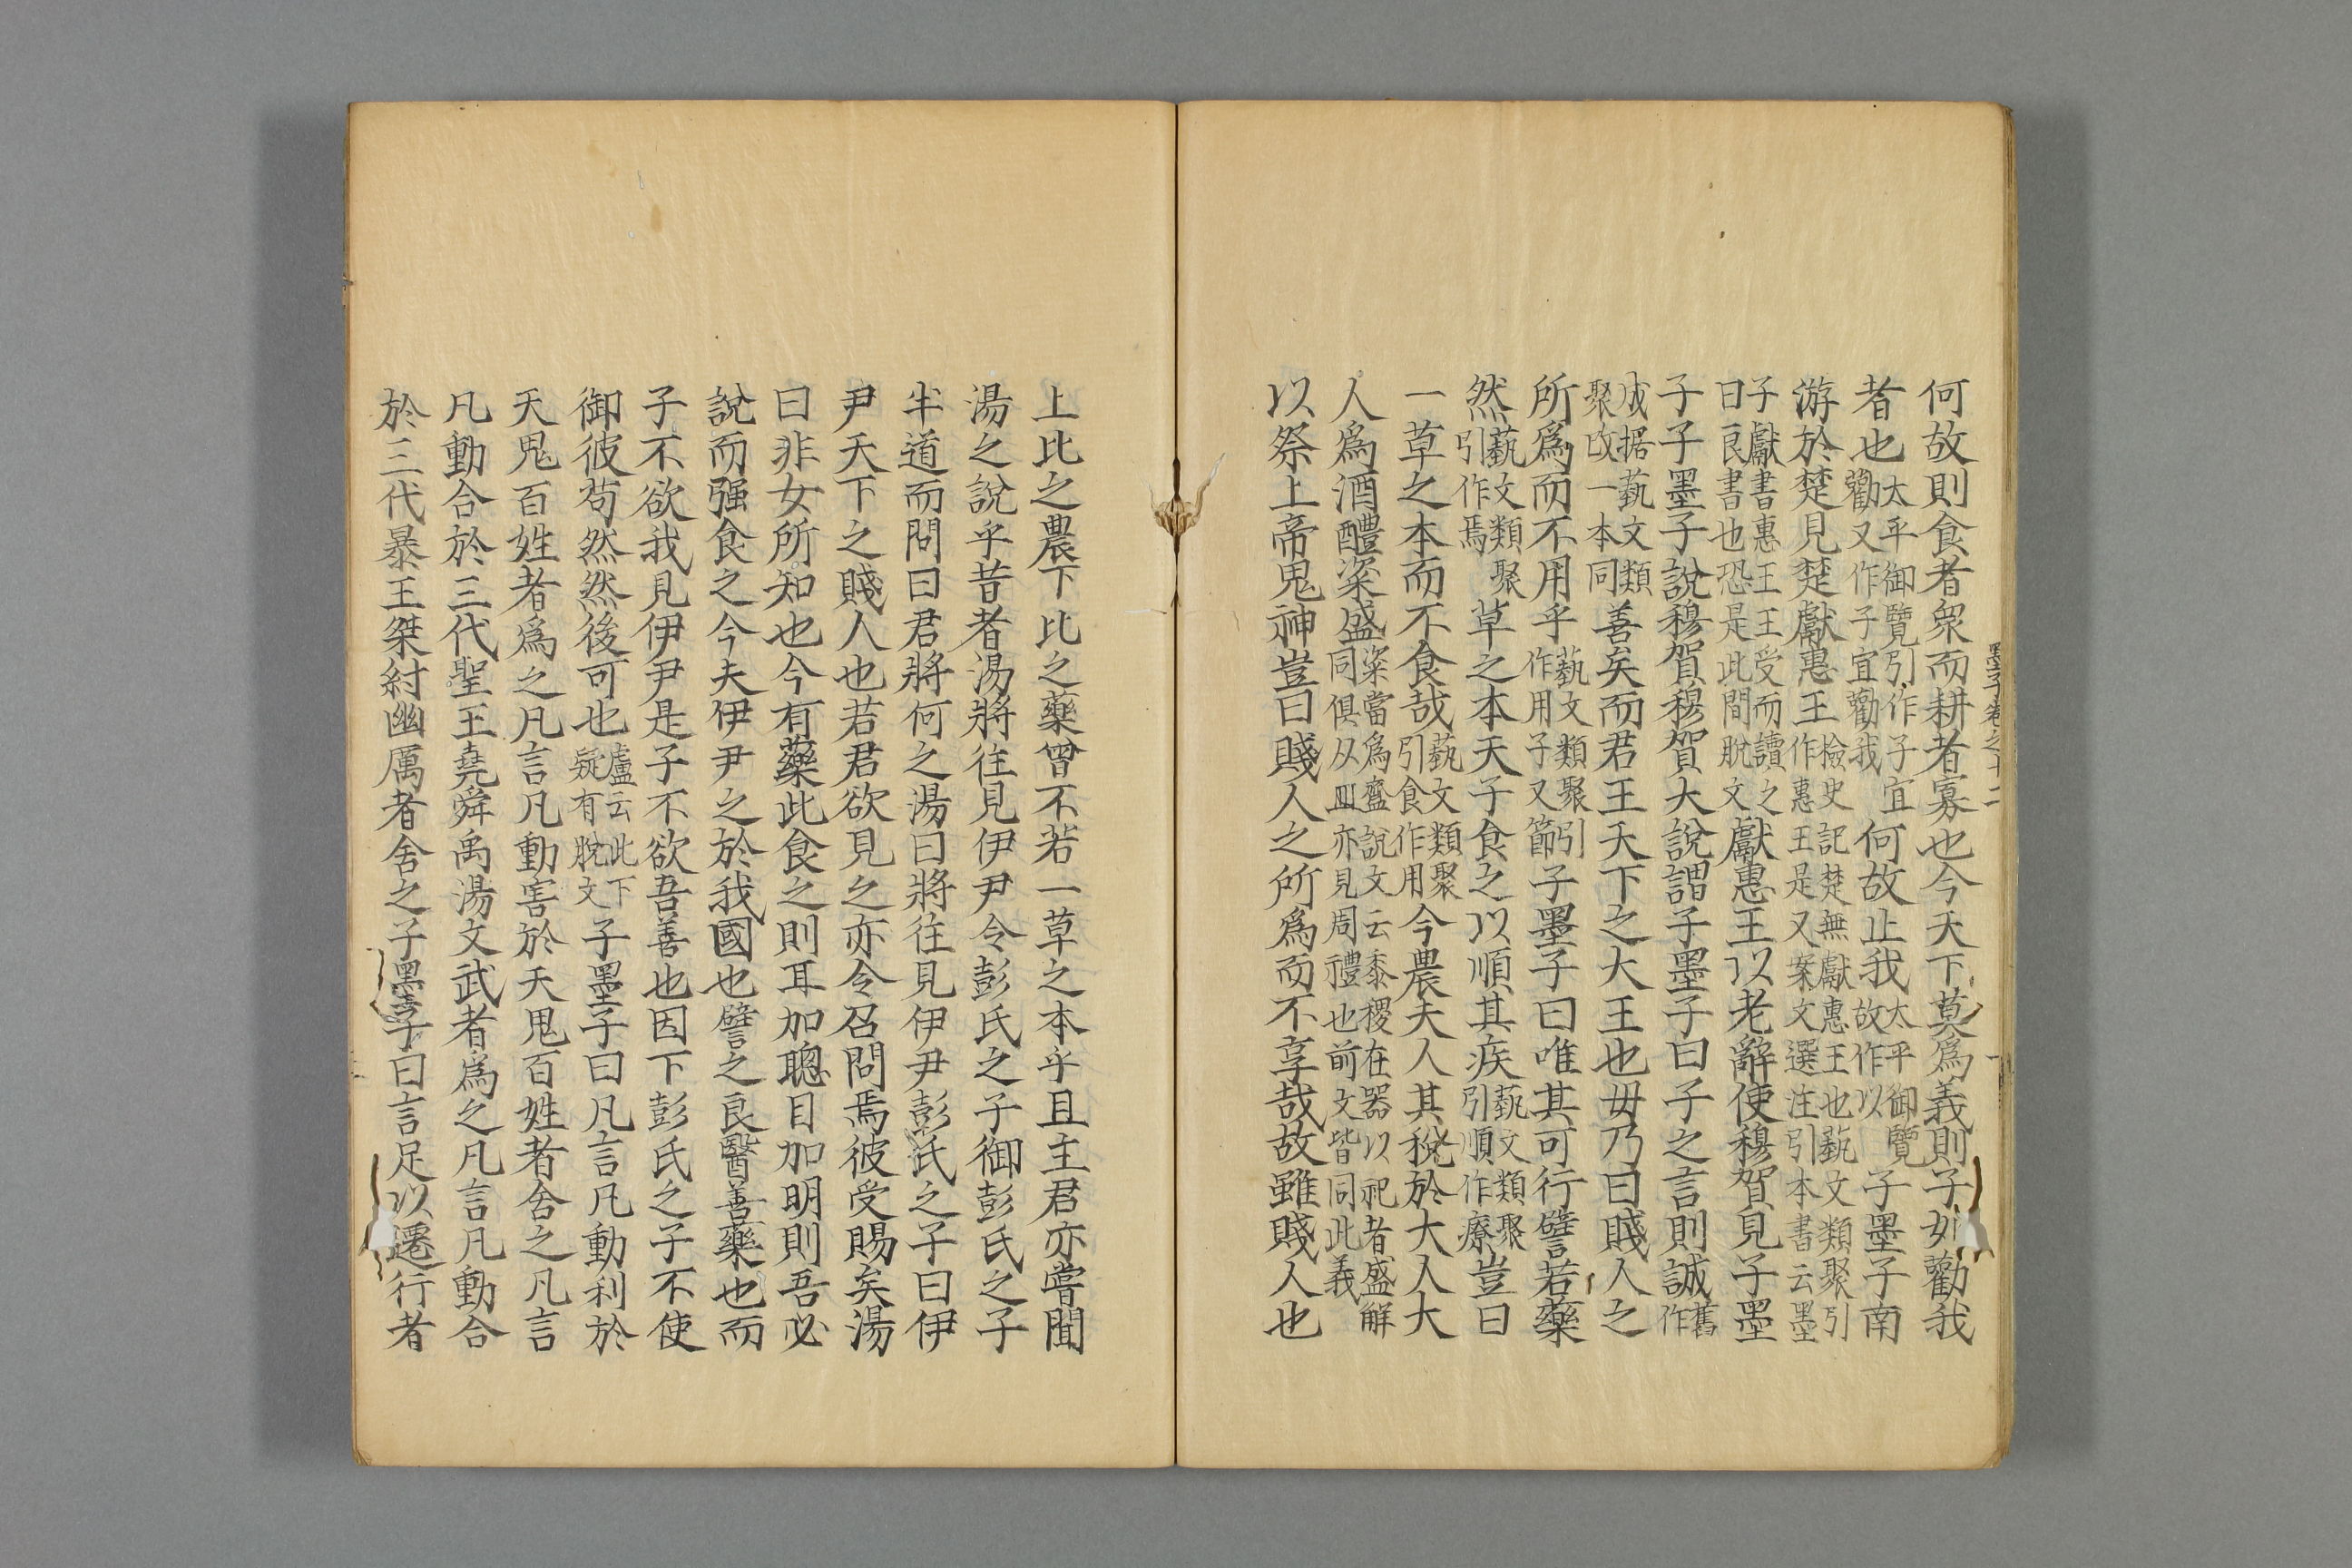 墨子卷之十二 一
何故則食者衆而耕者寡也今天下莫爲義則子如勸我
者也太平御覽引作子宜勸又作子宜勸我何故止我太平御覽故作以子墨子南
游於楚見楚獻惠王檢史記楚無獻惠王也藝文類聚引作惠王是又案文選注引本書云墨
子獻書惠王王受而讀之曰良書也恐是此間脫文獻惠王以老辭使穆賀見子墨
子子墨子說穆賀穆賀大說謂子墨子曰子之言則誠舊作
成据藝文類聚改一本同善矣而君王天下之大王也毋乃曰賤人之
所爲而不用乎藝文類聚引作用子又節子墨子曰唯其可行譬若藥
然藝文類聚引作焉草之本天子食之以順其疾藝文類聚引順作療豈曰
一草之本而不食哉藝文類聚引食作用今農夫入其稅於大人大
人爲酒醴粢盛粢當爲齍說文云黍稷在器以祀者盛解同俱从皿亦見周禮也前文皆同此義
以祭上帝鬼神豈曰賤人之所爲而不享哉故雖賤人也
上比之農下比之藥曾不若一草之本乎且主君亦嘗聞
湯之說乎昔者湯將往見伊尹令彭氏之子御彭氏之子
半道而問曰君將何之湯曰將往見伊尹彭氏之子曰伊
尹天下之賤人也若君欲見之亦令召問焉彼受賜矣湯
曰非女所知也今有藥此食之則耳加聰目加明則吾必
說而强食之今夫伊尹之於我國也譬之良醫善藥也而
子不欲我見伊尹是子不欲吾善也因下彭氏之子不使
御彼苟然然後可也盧云此下疑有脫文子墨子曰凡言凡動利於
天鬼百姓者爲之凡言凡動害於天鬼百姓者舍之凡言
凡動合於三代聖王堯舜禹湯文武者爲之凡言凡動合
於三代暴王桀紂幽厲者舍之子墨子曰言足以遷行者